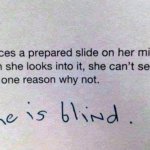 ces a prepared slide on her mi
n she looks into it, she can't se
one reason why not.
he is blind.